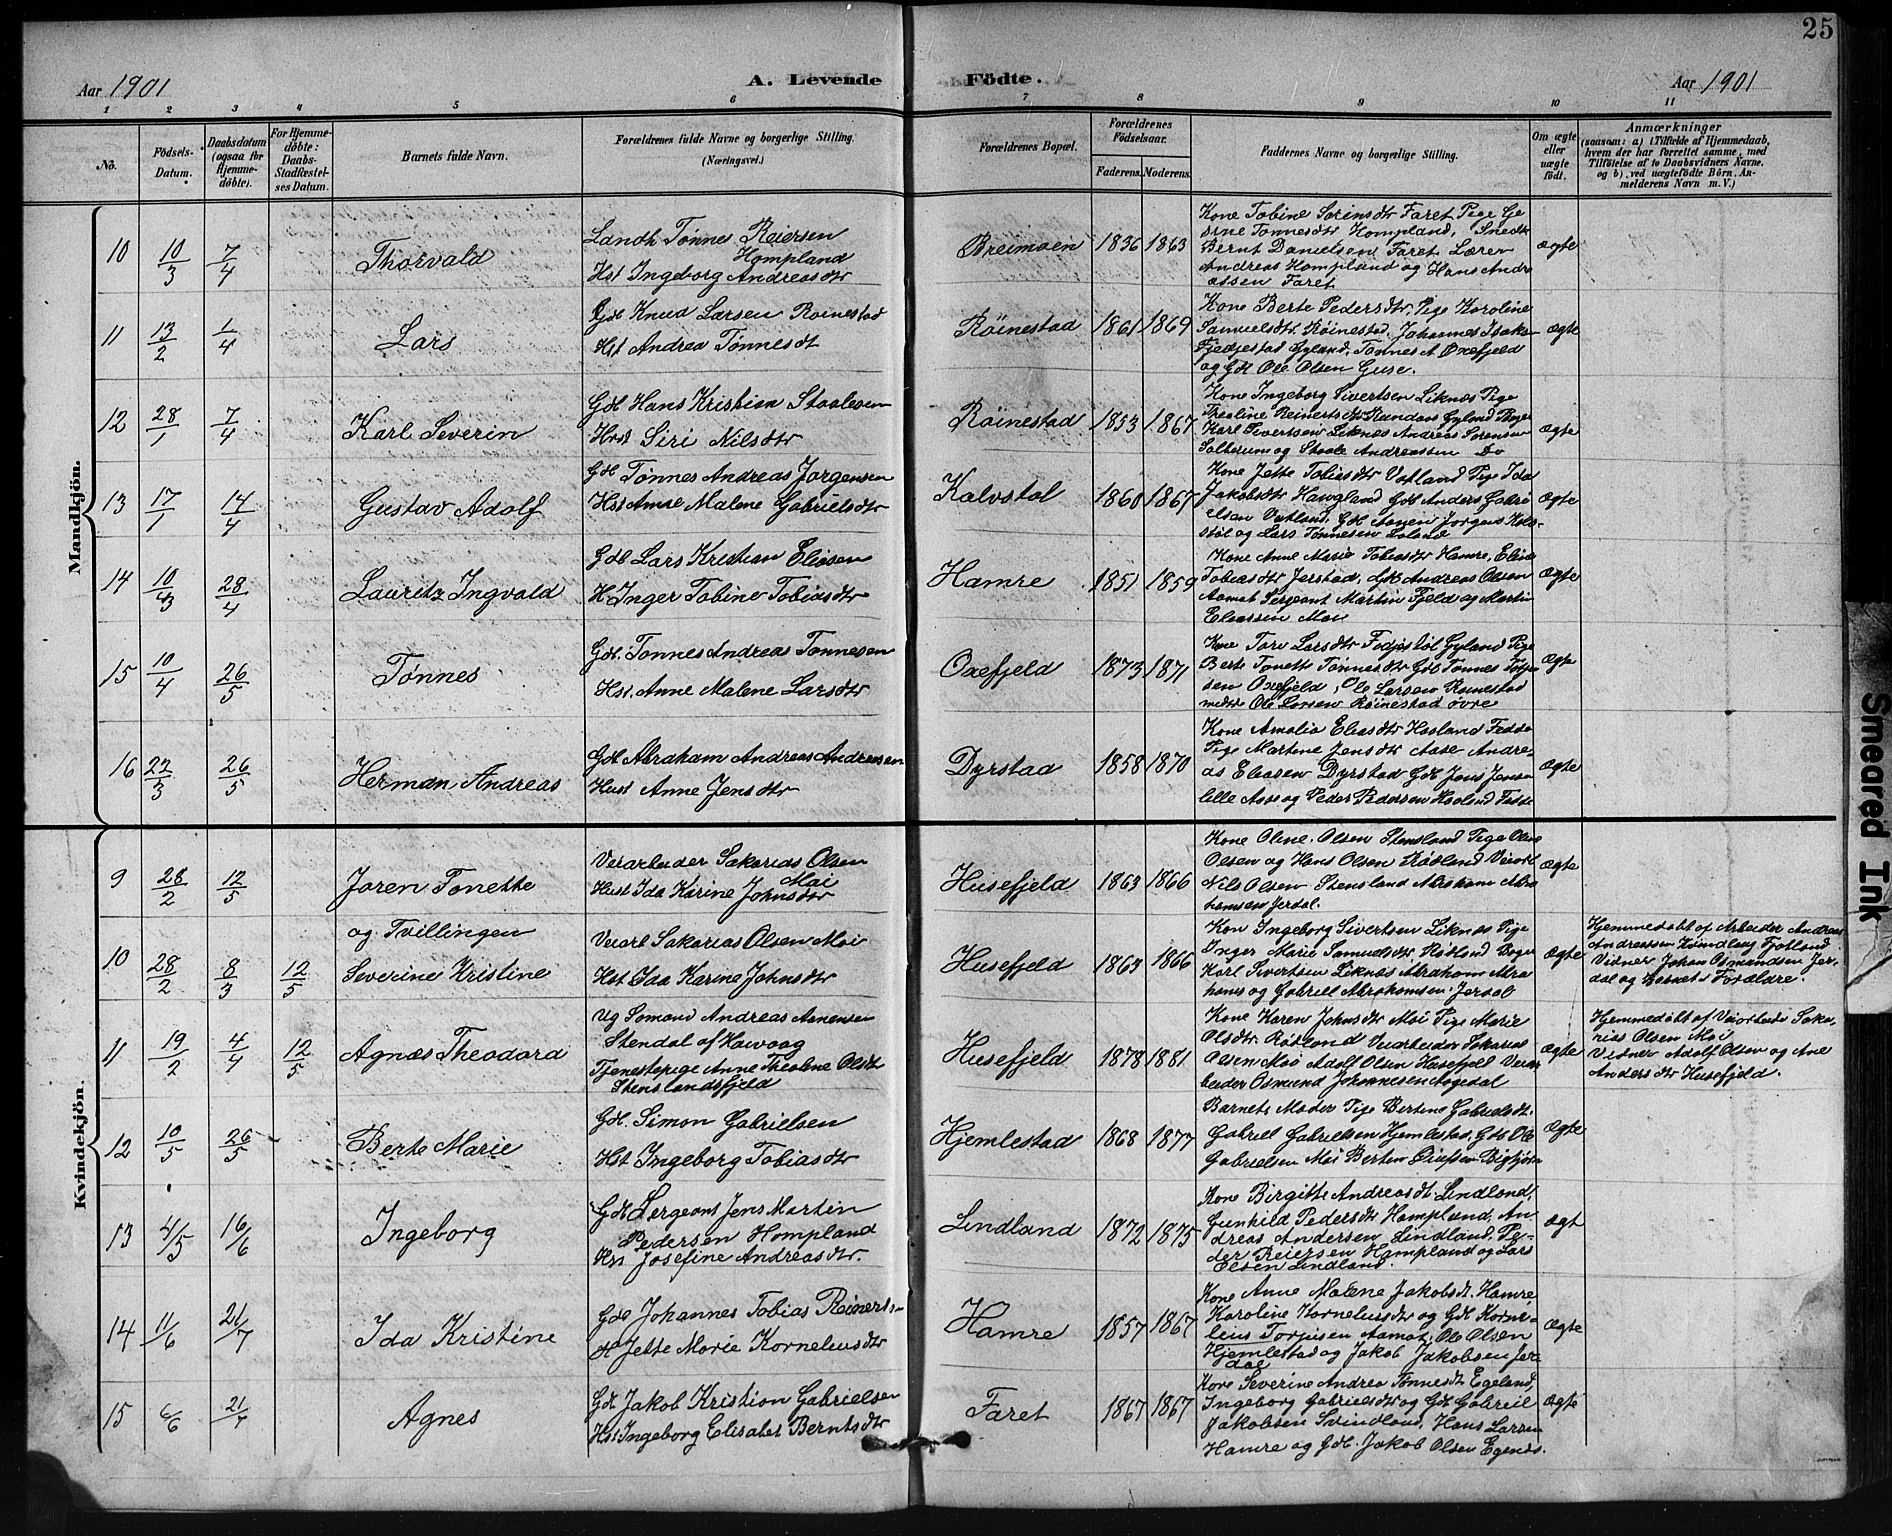 25
Aar 1901
A. Levende
Födte.
Aar 1901
1 2 3 4 5 6 7 8 9 10 11
No.
Födsels-
Datum.
Daabsdatum
(ogsaa for
Hjemme-
döbte).
For Hjemme-
döbte:
Daabs-
Stadfæstel-
ses Datum.
Barnets fulde Navn.
Forældrenes fulde Navne og borgerlige Stilling.
(Næringsvei.)
Forældrenes Bopæl.
Forældrenes
Födselsaar.
Faderens. Moderens.
Faddernes Navne og borgerlige Stilling.
Om ægte
eller
uægte
födt.
Anmærkninger
(saasom: a) i Tilfælde af Hjemmedaab,
hvem der har forrettet samme, med
Tilföielse af to Daabsvidners Navne.
og b), ved uægtefödte Börn, An-
melderens Navn m. V.)
Mandkjön.
10 10/3 7/4 Thorvald
Landh Tønnes Reiersen
Hompland
Hst Ingeborg Andreasdtr
Breimoen 1836 1863
Kone Tobine Sørensdtr Faret Pige Ge
Tønnesdtr Hompland, Snedk
Bernt Danielsen Faret Lærer
Andreas Hompland og Hans Andre
assen Faret
ægte
11 13/2 1/4 Lars
Gdb Knud Larsen Røinestad
Hst Andrea Tønnesdt
Röinestad 1861 1869
Kone Berte Pedersdtr, Pige Karoline
Samuelsdtr Røinestad, Johannes Isaks
Gyland, Tønnes A Oxefjeld
og Gdb Ole Olsen Guse.
ægte
12 28/1 7/4 Karl Severin
Gdb Hans Kristian Staalesen
Hst Siri Nilsdtr
Röinestad 1853 1867
Kone Ingeborg Sivertsen Liknæs Pige
Thealine Reinertsdtr Gyland
Karl Sivertsen Liknæs Andreas Sørensen
og Staale Andreassen Do
ægte
13 17/1 14/4 Gustav Adolf
Gdb Tønnes Andreas Jørgensen
Hst Anne Malene Gabrielsdtr
Kalvstøl 1860 1867
Kone Jette Tobiasdtr Vatland Pige Ida
Jakobsdtr Haugland Gdb Anders Gabri
elsen Vatland, Gdb Aanen Jørgens Kalv-
støl og Lars Tønnesen Loland
ægte
14 10/3 28/4 Lauritz Ingvald
Gdb Lars Kristian Eliesen
H Inger Tobine Tobiasdtr
Hamre 1851 1859
Kone Anne Marie Tobiasdtr Hamre,
Tobiasdtr Jerstad, Gdb Andreas Olsen
Aamot Sergeant Martin Fjeld og Martin
Eliassen Moi
ægte
15 10/4 26/5 Tønnes
Gdb. Tønnes Andreas Tønnesen
Hst. Anne Malene Larsdtr
Oxefjeld 1873 1871
Kone Larsdtr Gyland Pige
Berte Tonette Tønnesdtr Gdb Tønnes
sen Oxefjeld, Ole Larsen Røinestad
Ole Larsen Røinestad øvre
ægte
16 22/3 26/5 Herman Andreas
Gdb Abraham Andreas Andreasen
Hust Anne Jensdtr
Dyrstad 1858 1870
Kone Amalia Eliasdtr Haaland
Pige Martine Jensdtr Aase Andre-
as Eliasen Dyrstad Gdb Jens Jensen
lille Aase og Peder Pedersen Haaland
ægte
Kvindekjön.
9 28/2 12/5 Joren Tonette
Veiarbeider Sakarias Olsen
Moi
Hust Ida Karine Johnsdtr
Husefjeld 1863 1866
Kone Oline Olsen Stensland Pige Oline
Olsen og Hans Olsen Rødland Veiarb
Nils Olsen Stensland Abraham Abra
hamsen Jerdal.
ægte
10 28/2 8/3 12/5
og Tvillingen
Severine Kristine
Veiarb Sakarias Olsen Moi
Hst Ida Karine Johnsdtr
Husefjeld 1863 1866
Kon Ingeborg Sivertsen Liknæs Pige
Inger Marie Samuelsdtr Rødland
Karl Sivertsen Liknæs Abraham Abra
hams og Gabriel Abrahamsen Jerdal
ægte
Hjemmedøbt af Arbeider Andreas
Andreassen Fjotland
Vidner Johan Osmundsen Jer-
dal og Barnets Forældre.
11 19/2 4/4 12/5 Agnæs Theodora
Ug Sømand Andreas Aanensen
Stendal af
Tjenestepige Anne Theoline Olsdt
Stenslandsfjeld
Husefjeld 1878 1881
Kone Karen Johnsdtr Moi Pige Marie
Olsdtr Rødland Veiarbeider Sakarias
Olsen Moi Adolf Olsen Husefjeld Veiar
beider Osmund Johannesen Aagedal
ægte
Hjemmedøbt af Veiarbeid Saka-
rias Olsen Moi
Vidner Adolf Olsen og Ane
Andersdtr Husefjeld.
12 10/5 26/5 Berte Marie
Gdb. Simon Gabrielsen
Hst Ingeborg Tobiasdtr
Hjemlestad 1868 1877
Barnets Moder Pige Bertine Gabrielsdt.
Gabriel Gabrielsen Hjemlestad, Gdb Ole
Gabrielsen Moi
ægte
13 4/5 16/6 Ingeborg
Gdb Sergeant Jens Martin
Pedersen Hompland
Josefine Andreasdtr.
Lindland 1872 1875
Kone Birgitte Andreasdt Lindland,
Gunhild Pedersdtr Hompland, An
dreas Andersen Lindland. Pe-
der Reiersen Hompland og Lars
Olsen Lindland.
ægt
14 11/6 21/7 Ida Kristine
Gdb Johannes Tobias Reinerts
H Jette Marie Korneliusdtr
Hamre 1857 1867
Kone Anne Malene Jakobsdt. Hamre
Karoline Korneliusdtr og Gdb Korne-
lius Torjusen Aamot, Ole Olsen
Hjemlestad og Jakob Jakobsen Jer
dal
ægte
15 6/6 21/7 Agnes
Gdb Jakob Kristian Gabrielsen
Hst Ingeborg Elisabet Berntsdtr
Faret 1867 1867
Kone Severine Andrea Tønnesdt Egeland,
Ingeborg Gabrielsdtr og Gdb Gabriel
Jakobsen Svindland, Hans Larsen
Hamre og Gdb. Jakob Olsen
ægte
Smeared Ink